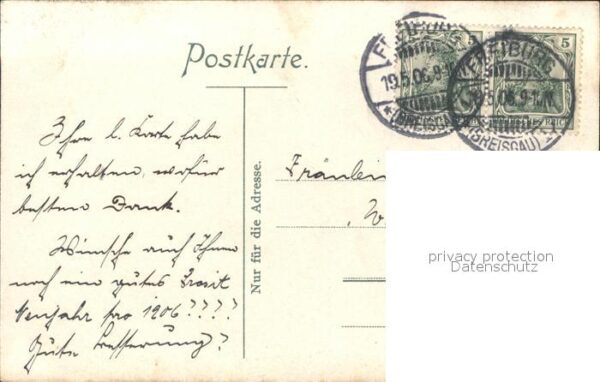 Postkarte.
5
5
FREIBURG
19.5.06.9-10V.
* (BREISGAU)
FREIBURG
5.06.9-10V.
(BREISGAU)
Ihre l. Karte habe
ich erhalten, wofür
besten Dank.
Wünsche auch Ihnen
noch ein gutes Prosit
Neujahr pro 1906????
Gute Besserung?
Nur für die Adresse.
Fräulein
privacy protection
Datenschutz